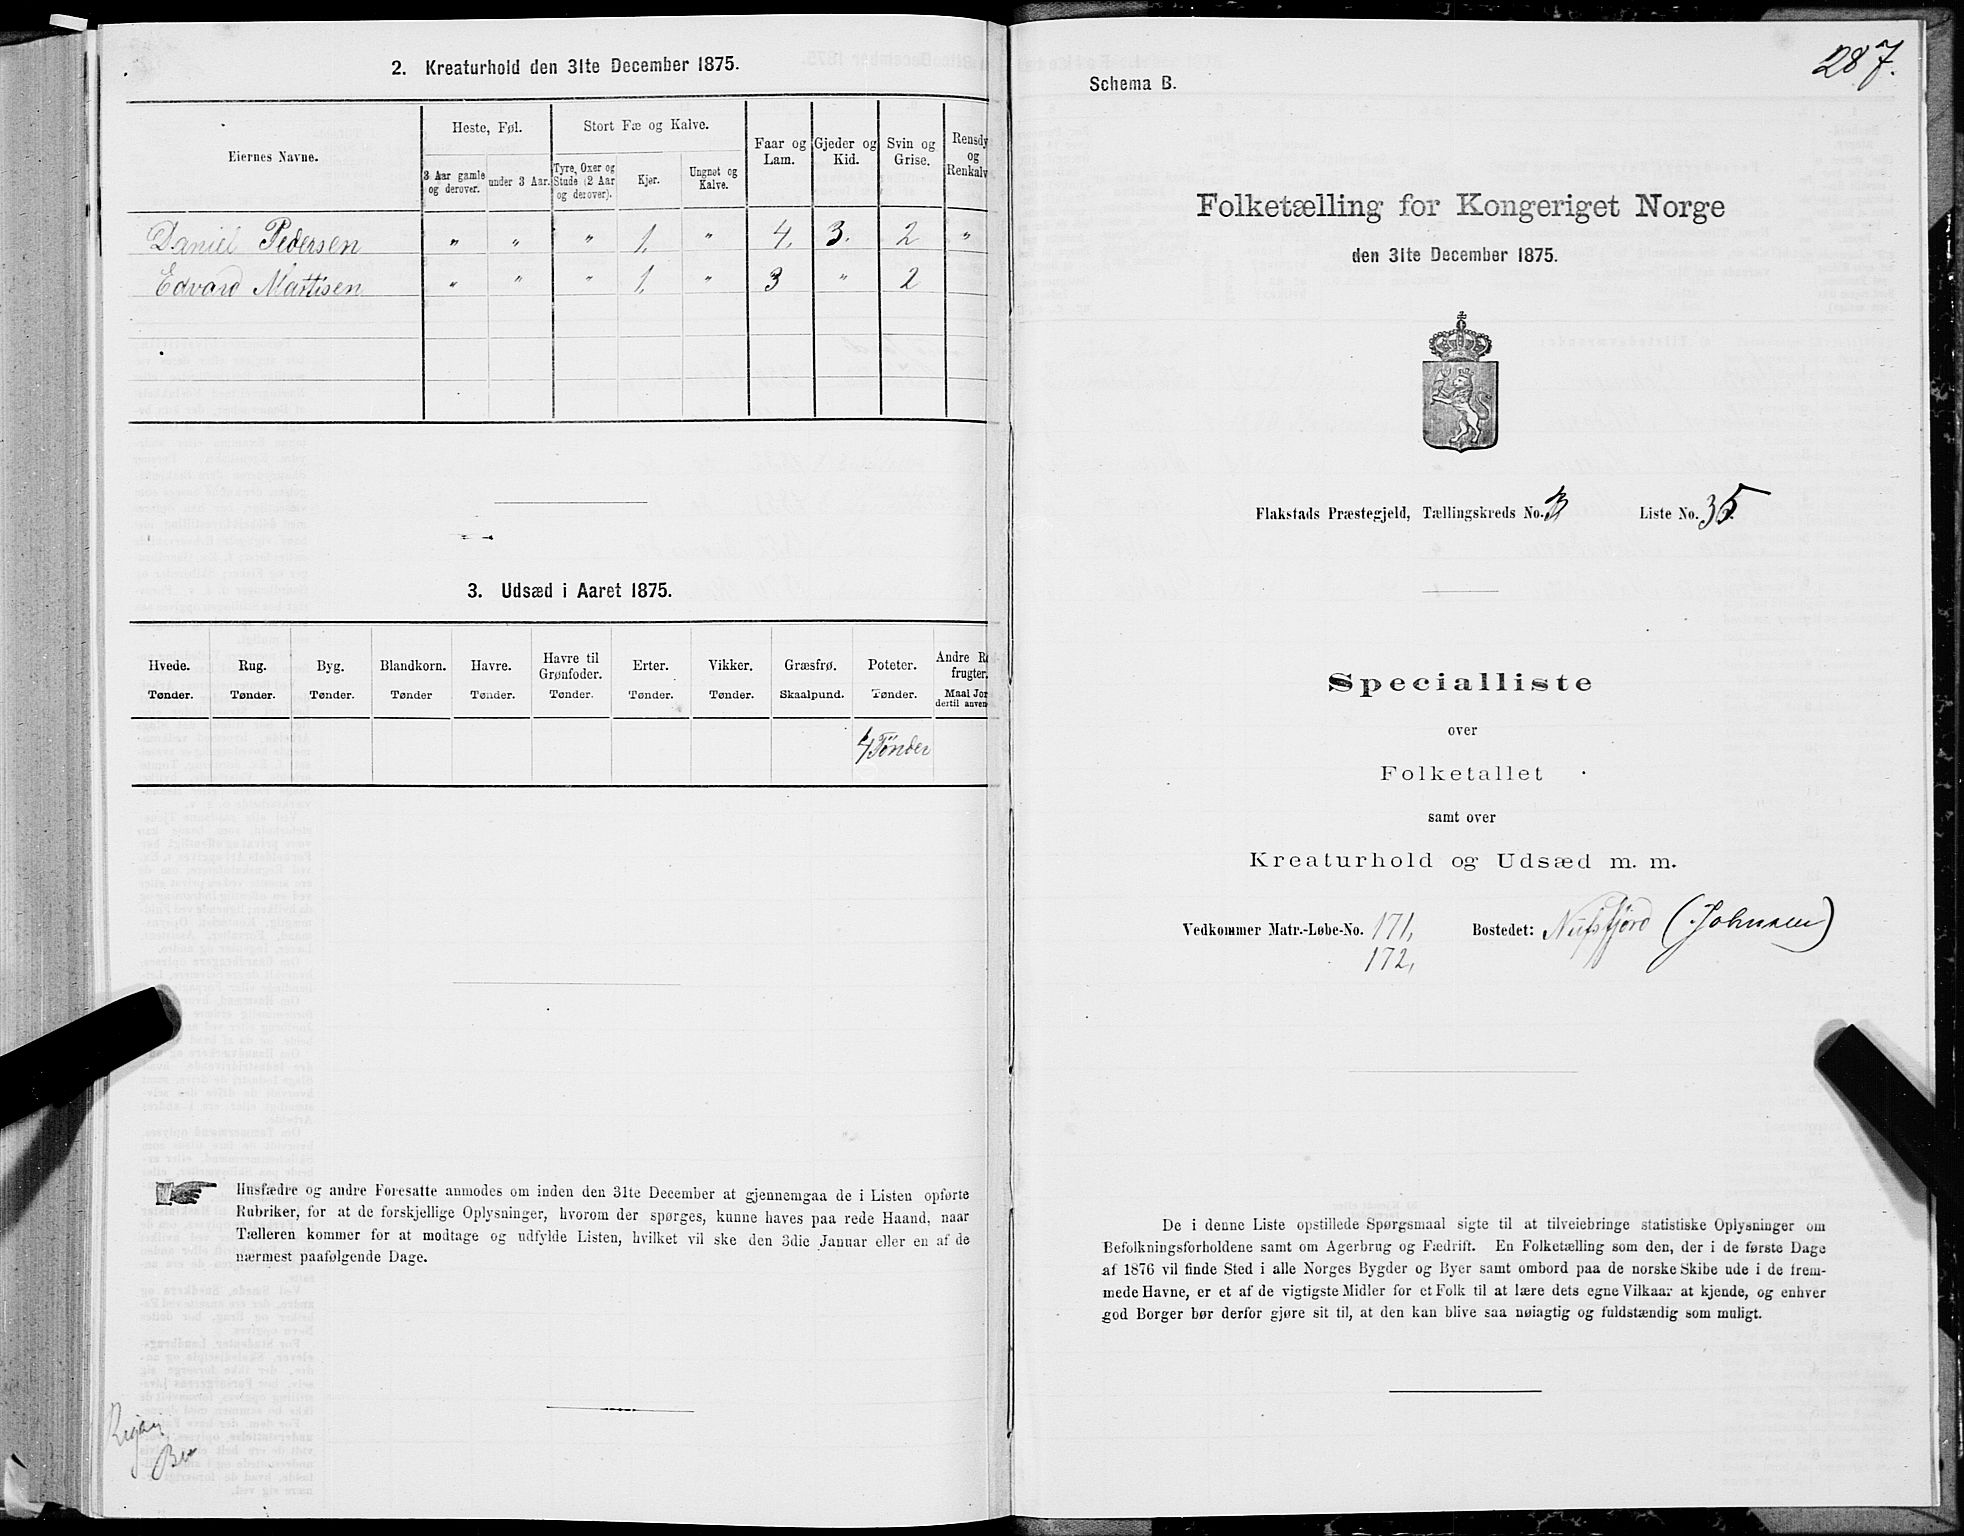 2. Kreaturhold den 31te December 1875.
Eiernes Navne.
Heste, Føl.
Stort Fæ og Kalve.
Faar og Lam.
Gjeder og Kid.
Svin og Grise.
Rensdy og Renkalv
3 Aar gamle og derover.
under 3 Aar.
Tyre, Oxer og Stude (2 Aar og derover).
Kjør.
Ungnøt og Kalve.
Daniel Pedersen " " " 1, " 4, 3. 2 "
Edvard Martisen " " " 1, " 3 " 2
3. Udsæd i Aaret 1875.
Hvede. Rug. Byg. Blandkorn. Havre. Havre til Grønfoder. Erter. Vikker. Græsfrø. Poteter. Andre R frugter.
Tønder. Tønder. Tønder. Tønder Tønder. Tønder. Tønder. Tønder. Skaalpund. Tønder. Maal Jor dertil anven
4 Tönder
Husfædre og andre Foresatte anmodes om inden den 31te December at gjennemgaa de i Listen opførte
Rubriker, for at de forskjellige Oplysninger, hvorom der spørges, kunne haves paa rede Haand, naar
Tælleren kommer for at modtage og udfylde Listen, hvilket vil ske den 3die Januar eller en af de
nærmest paafølgende Dage.
287.
Schema B.
Folketælling for Kongeriget Norge
den 31te December 1875.
Flakstads Præstegjeld, Tællingskreds No. 3 Liste No. 35.
Specialliste
over
Folketallet
samt over
Kreaturhold og Udsæd m. m.
Vedkommer Matr.-Løbe-No. 171, Bostedet: Nufsfjord (Johnsen)
172,
De i denne Liste opstillede Spørgsmaal sigte til at tilveiebringe statistiske Oplysninger om
Befolkningsforholdene samt om Agerbrug og Fædrift. En Folketælling som den, der i de første Dage
af 1876 vil finde Sted i alle Norges Bygder og Byer samt ombord paa de norske Skibe ude i de frem-
mede Havne, er et af de vigtigste Midler for et Folk til at lære dets egne Vilkaar at kjende, og enhver
god Borger bør derfor gjøre sit til, at den kan blive saa nøiagtig og fuldstændig som muligt.